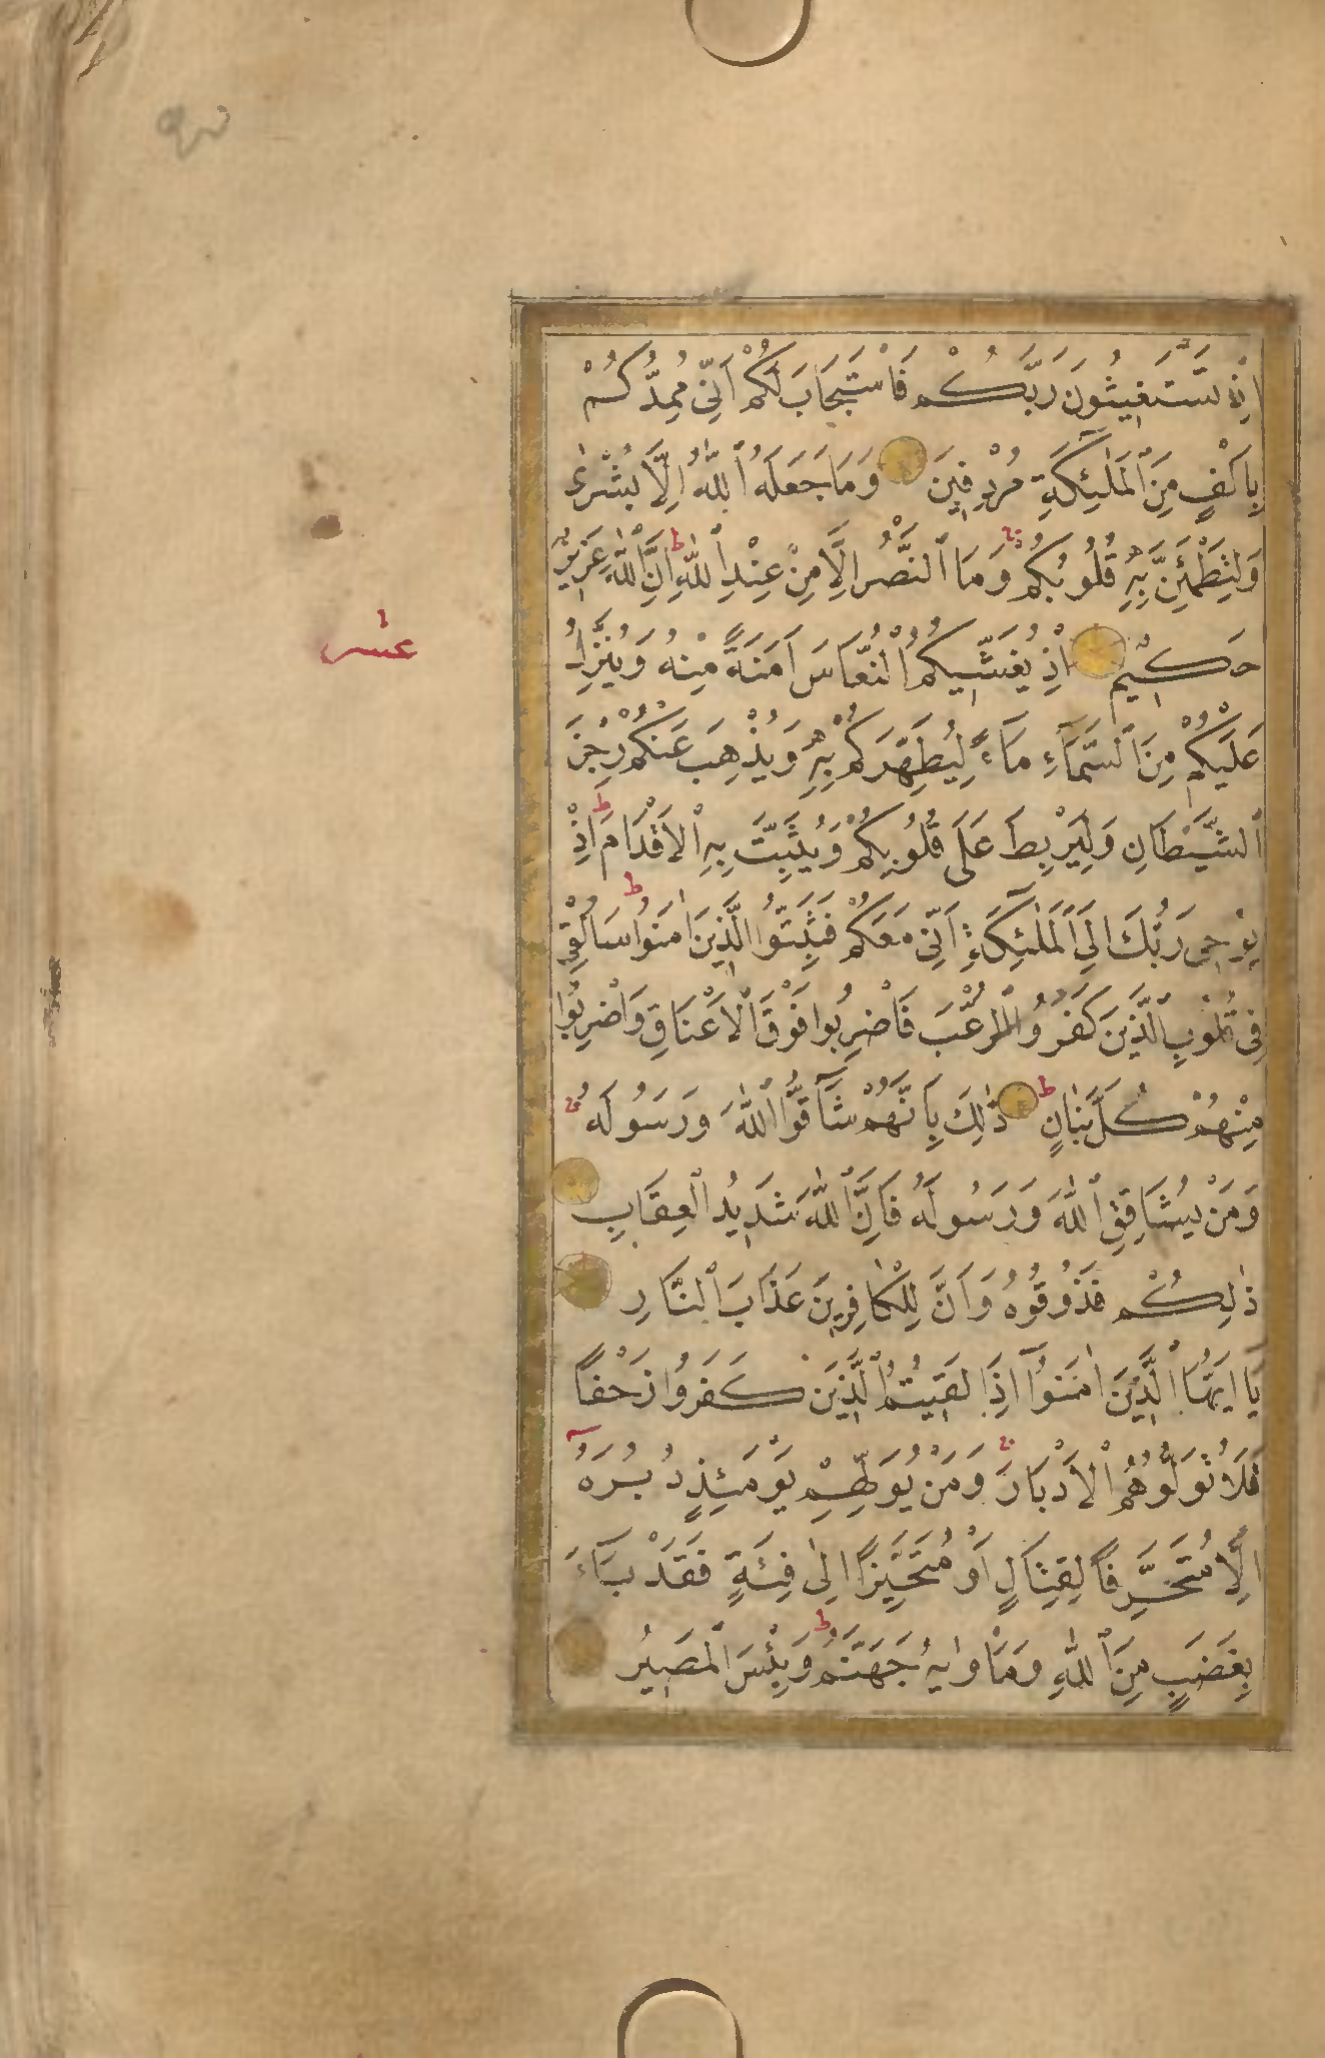 اِذْ تَسْتَغِيثُونَ رَبَّكُمْ فَاسْتَجَابَ لَكُمْ اَنِّى مُمِدُّكُمْ
بِاَلْفٍ مِنَ الْمَلٰئِكَةِ مُرْدِفِينَ وَمَا جَعَلَهُ اللّٰهُ اِلَّا بُشْرٰى
وَلِتَطْمَئِنَّ بِهِ قُلُوبُكُمْ وَمَا النَّصْرُ اِلَّا مِنْ عِنْدِ اللّٰهِ ط اِنَّ اللّٰهَ عَزِيزٌ
حَكِيمٌ اِذْ يُغَشِّيكُمُ النُّعَاسَ اَمَنَةً مِنْهُ وَيُنَزِّلُ
عشر
عَلَيْكُمْ مِنَ السَّمَآءِ مَآءً لِيُطَهِّرَكُمْ بِهِ وَيُذْهِبَ عَنْكُمْ رِجْزَ
الشَّيْطَانِ وَلِيَرْبِطَ عَلَى قُلُوبِكُمْ وَيُثَبِّتَ بِهِ الْاَقْدَامَ ط اِذْ
يُوحِى رَبُّكَ اِلَى الْمَلٰئِكَةِ اَنِّى مَعَكُمْ فَثَبِّتُوا الَّذِينَ اٰمَنُوا ط سَاُلْقِى
فِى قُلُوبِ الَّذِينَ كَفَرُوا الرُّعْبَ فَاضْرِبُوا فَوْقَ الْاَعْنَاقِ وَاضْرِبُوا
مِنْهُمْ كُلَّ بَنَانٍ ط ذٰلِكَ بِاَنَّهُمْ شَآقُّوا اللّٰهَ وَرَسُولَهُ
وَمَنْ يُشَاقِقِ اللّٰهَ وَرَسُولَهُ فَاِنَّ اللّٰهَ شَدِيدُ الْعِقَابِ
ذٰلِكُمْ فَذُوقُوهُ وَاَنَّ لِلْكَافِرِينَ عَذَابَ النَّارِ
يَا اَيُّهَا الَّذِينَ اٰمَنُوآ اِذَا لَقِيتُمُ الَّذِينَ كَفَرُوا زَحْفًا
فَلَا تُوَلُّوهُمُ الْاَدْبَارَ وَمَنْ يُوَلِّهِمْ يَوْمَئِذٍ دُبُرَهُ
اِلَّا مُتَحَرِّفًا لِقِتَالٍ اَوْ مُتَحَيِّزًا اِلٰى فِئَةٍ فَقَدْ بَآءَ
بِغَضَبٍ مِنَ اللّٰهِ وَمَاْوٰيهُ جَهَنَّمُ ط وَبِئْسَ الْمَصِيرُ